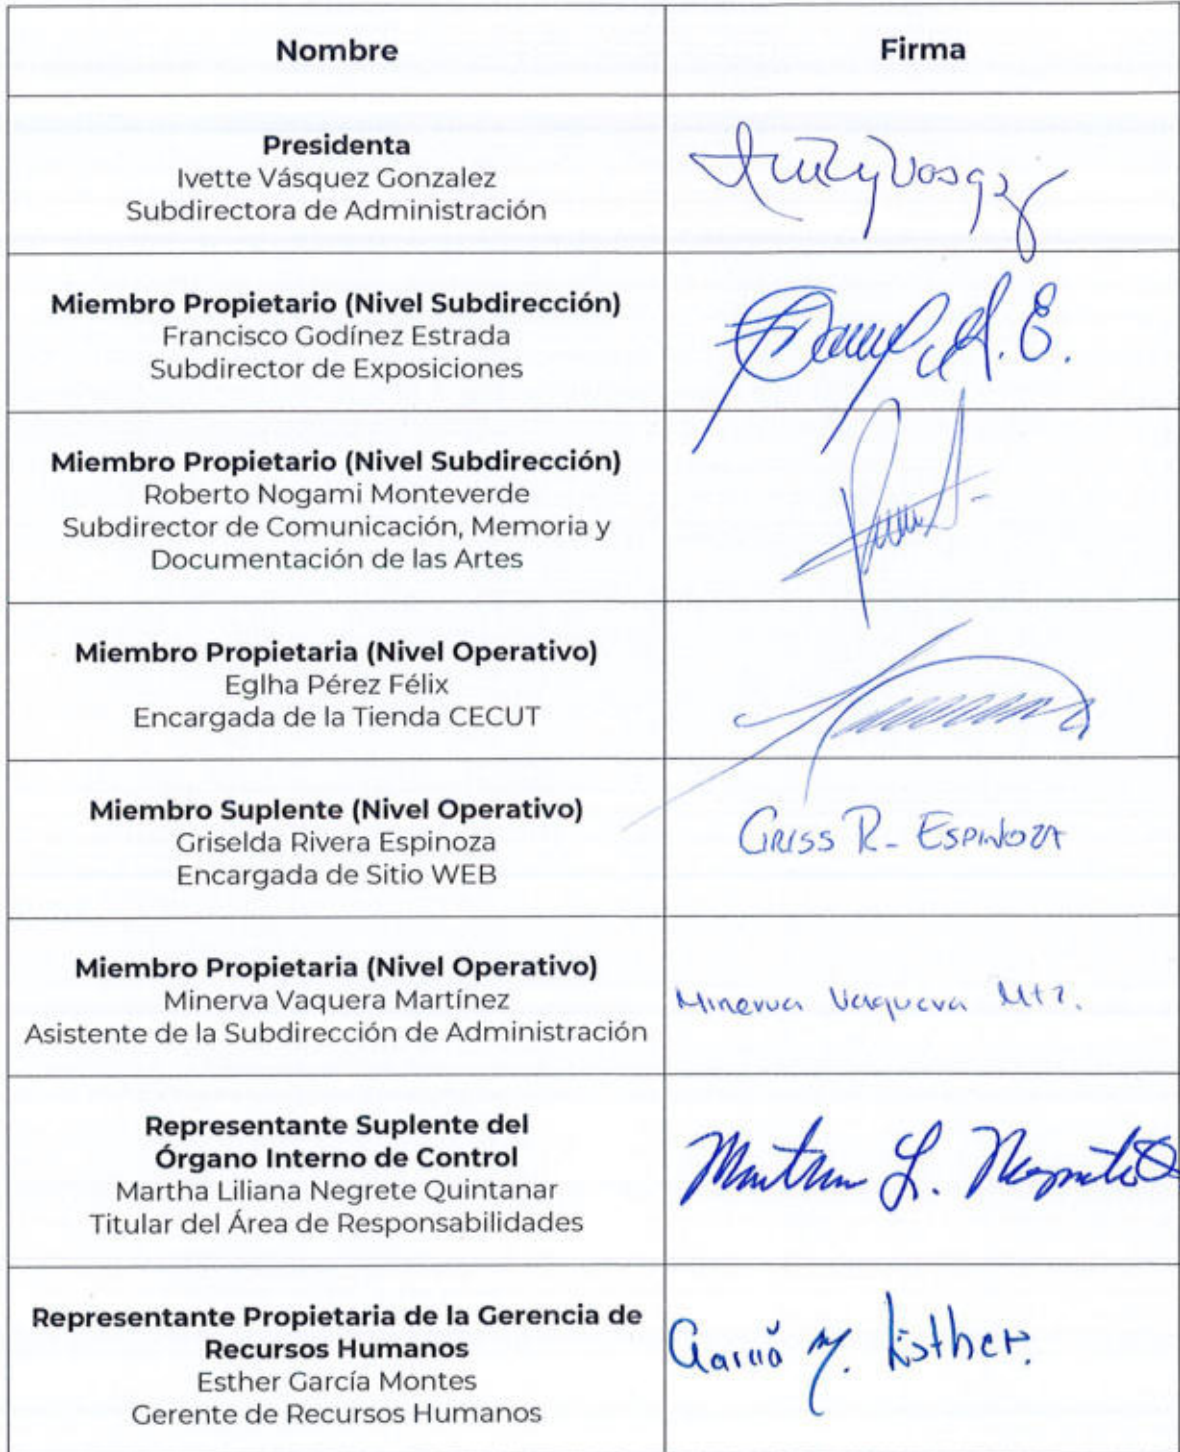 Nombre
Firma
Presidenta
Ivette Vásquez Gonzalez
Subdirectora de Administración
Miembro Propietario (Nivel Subdirección)
Francisco Godínez Estrada
Subdirector de Exposiciones
Miembro Propietario (Nivel Subdirección)
Roberto Nogami Monteverde
Subdirector de Comunicación, Memoria y
Documentación de las Artes
Miembro Propietaria (Nivel Operativo)
Eglha Pérez Félix
Encargada de la Tienda CECUT
Miembro Suplente (Nivel Operativo)
Griselda Rivera Espinoza
Encargada de Sitio WEB
GRISS R- ESPINOZA
Miembro Propietaria (Nivel Operativo)
Minerva Vaquera Martínez
Asistente de la Subdirección de Administración
Minerva Vaquera Mtz.
Representante Suplente del
Órgano Interno de Control
Martha Liliana Negrete Quintanar
Titular del Área de Responsabilidades
Martha L. Negrete
Representante Propietaria de la Gerencia de
Recursos Humanos
Esther García Montes
Gerente de Recursos Humanos
García M. Esther.